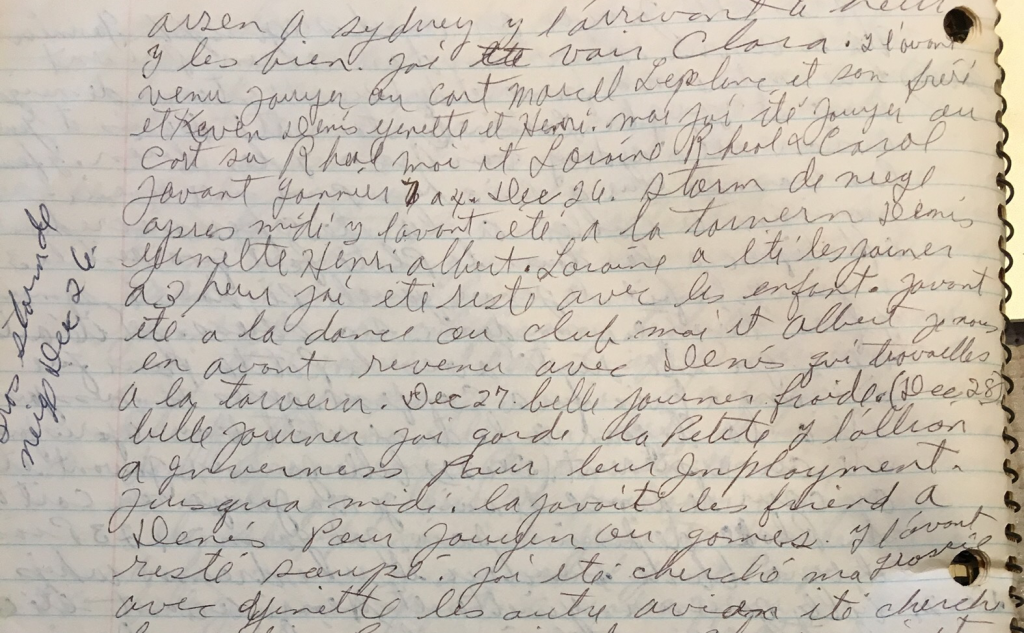 a sydney y l'arrivant a
y les bien. jai voir Clara. y l'avont
venu jouyer au cart Marcell Leplanc et son frere
et Keven Denis Ginette et Henri. moi jai ete jouyer au
cart su Rheal moi et Loraine Rheal & Carol
javant gannier 7 a 4. Dec 26. Storm de niege
apres midi y l'avont ete a la tarvern Denis
Ginette Henri albert. Loraine a ete les joiner
a 3 heur jai ete resté avec les enfant. javont
ete a la dance au club moi et albert
en avont revenu avec Denis qui travailles
a la tarvern. Dec 27 belle journer froide. (Dec 28)
belle journer jai garde la Petite y l'allion
a Inverness Pour leur Inployment.
Jusqua midi. la javoit les friend a
Denis Pour au games. y l'avont
resté soupé. jai ete cherché ma grosrie
avec Ginette les autre avion ete cherch
storm de
neige Dec 26